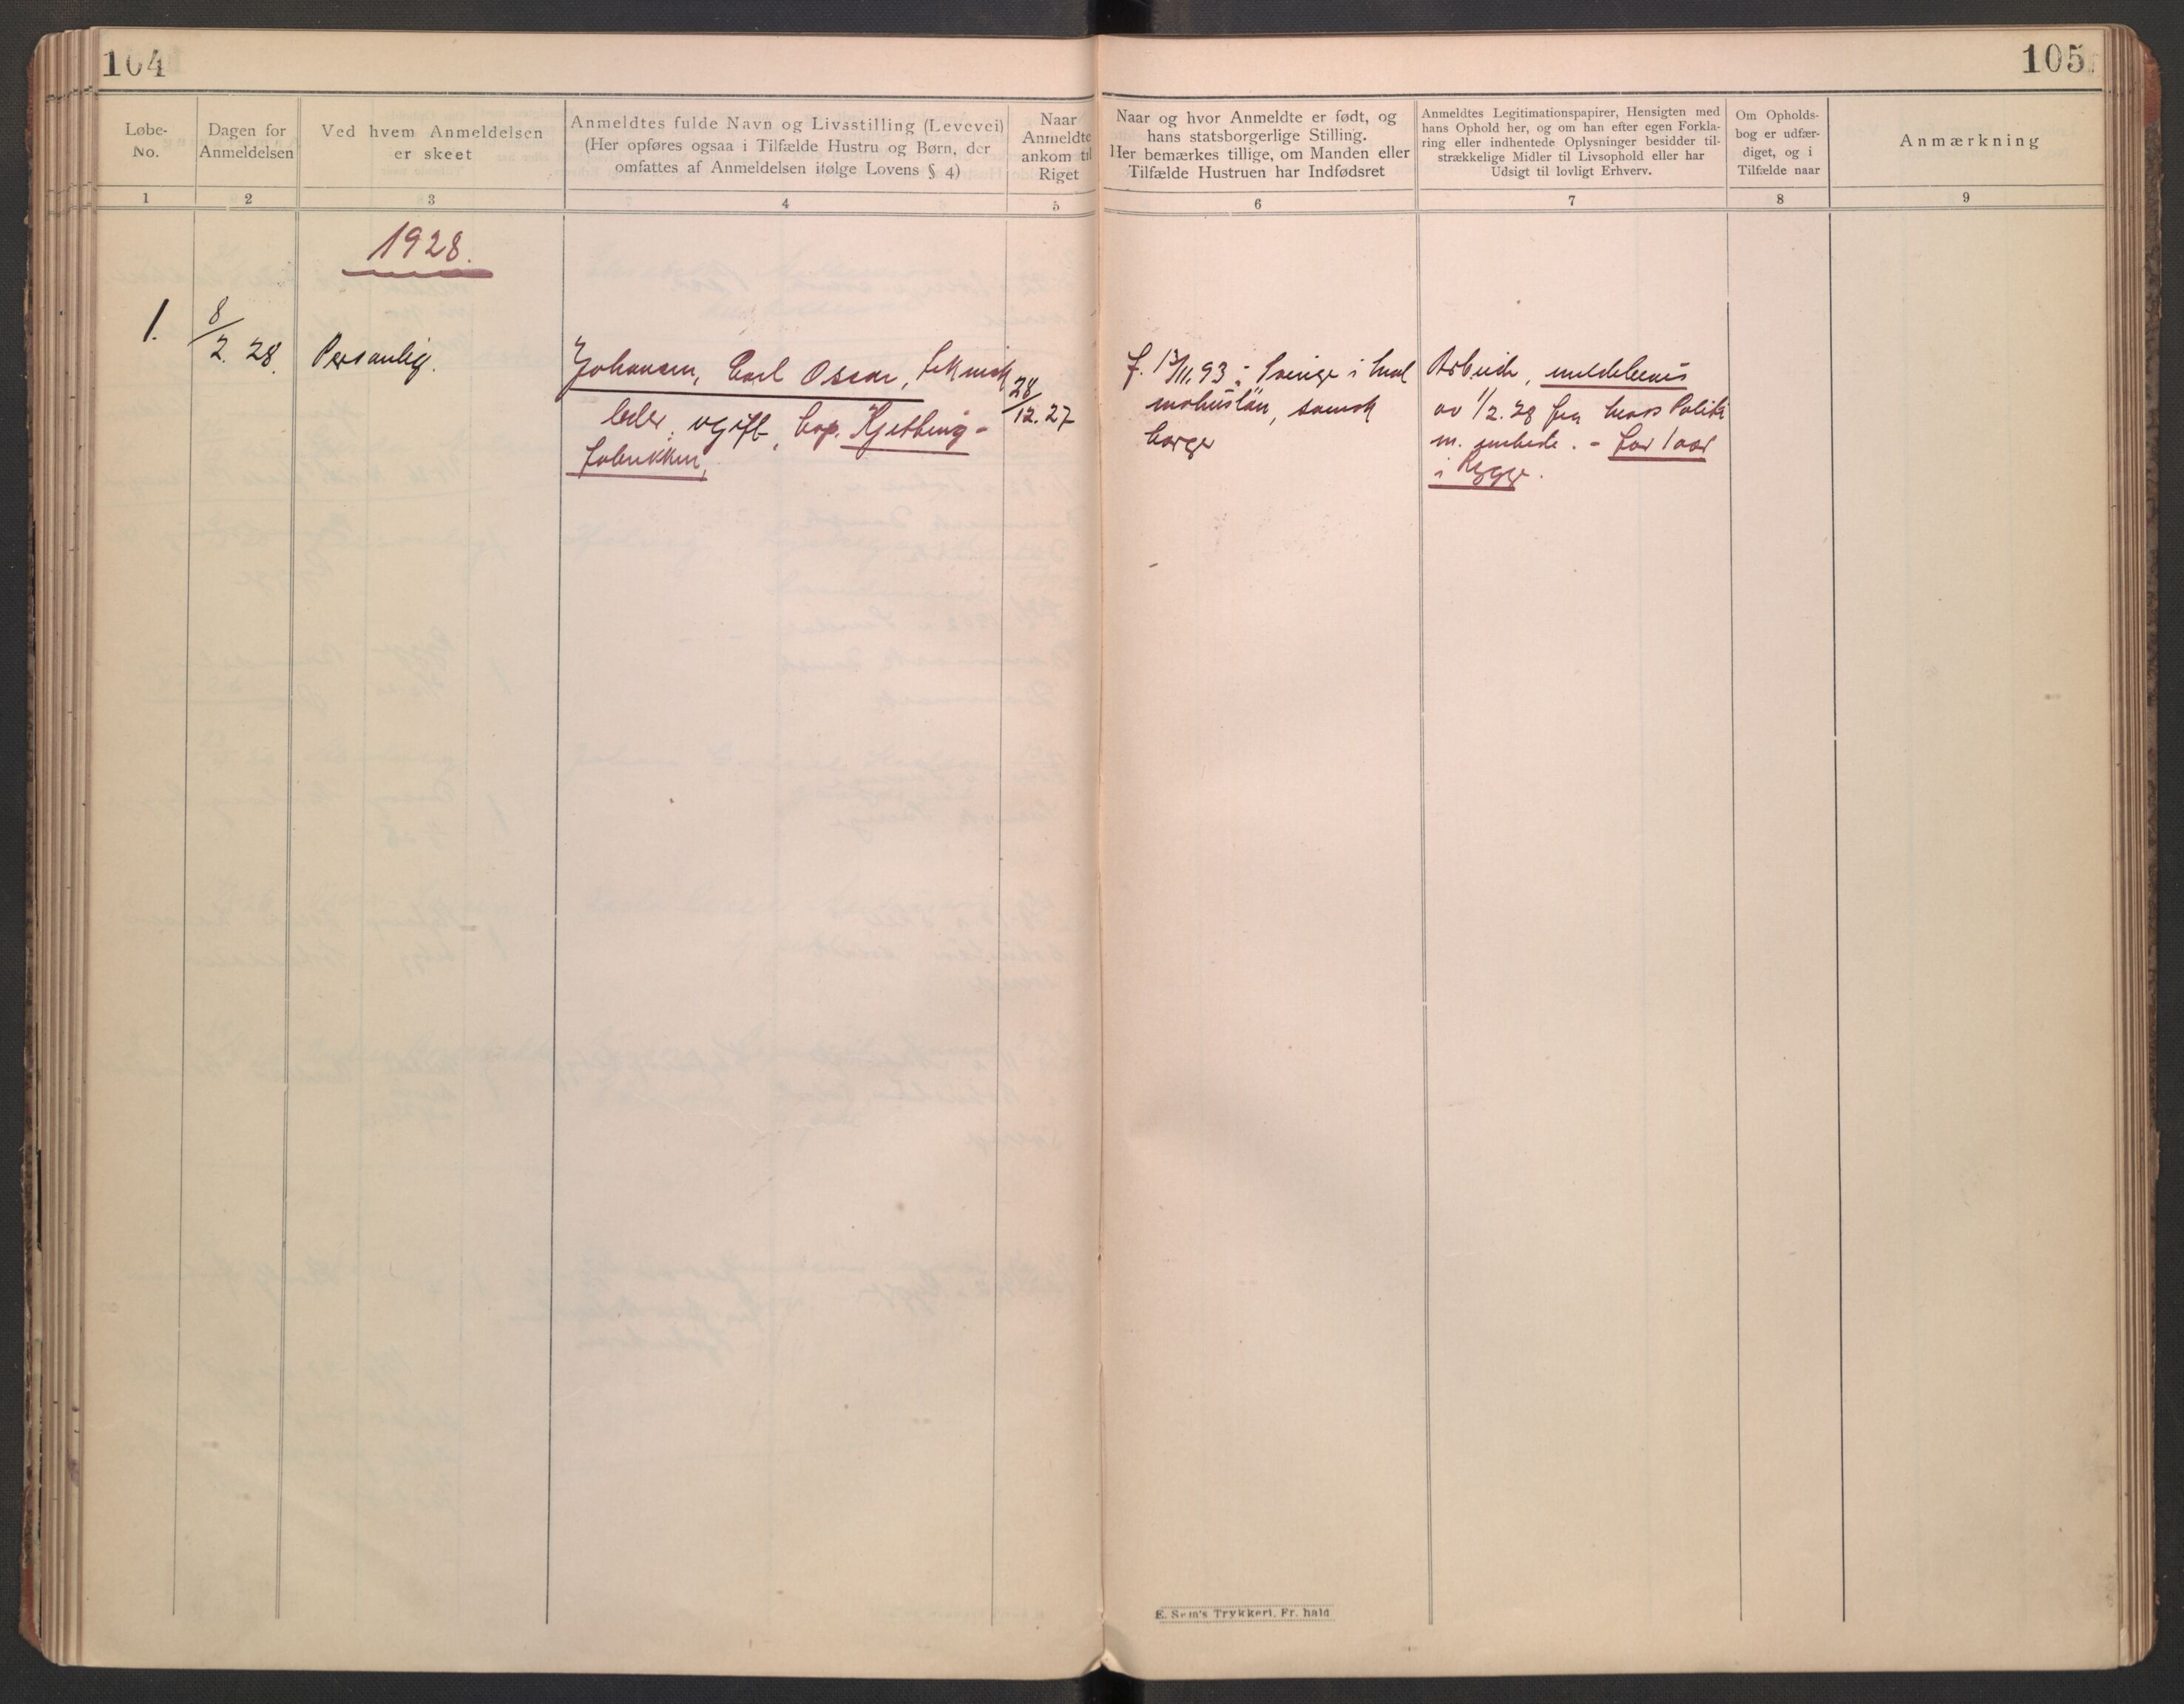 104
Løbe-
No.
Dagen for
Anmeldelsen
Ved hvem Anmeldelsen
er skeet
Anmeldtes fulde Navn og Livsstilling (Levevei)
(Her opføres ogsaa i Tilfælde Hustru og Børn, der
omfattes af Anmeldelsen ifølge Lovens § 4)
Naar
Anmeldte
ankom til
Riget
1
2
3
4
5
1928.
1.
8/2. 28.
Personlig.
Johansen, Carl Oscar, teknisk
leder, ugift, bop. Kjetting-
fabrikken,
28/12. 27
105
Naar og hvor Anmeldte er født, og
hans statsborgerlige Stilling.
Her bemærkes tillige, om Manden eller
Tilfælde Hustruen har Indfødsret
Anmeldtes Legitimationspapirer, Hensigten med
hans Ophold her, og om han efter egen Forkla-
ring eller indhentede Oplysninger besidder til-
strækkelige Midler til Livsophold eller har
Udsigt til lovligt Erhverv.
Om Opholds-
bog er udfær-
diget, og i
Tilfælde naar
Anmærkning
6
7
8
9
f. 13/11. 93 i Sverige i Mal
møhuslän, svensk
borger
Arbeide, meldebevis
av 1/2. 28 fra Politi
m. embede. - for 1 aar
i Rygge.
E. Sem's Trykkeri, Fr.hald